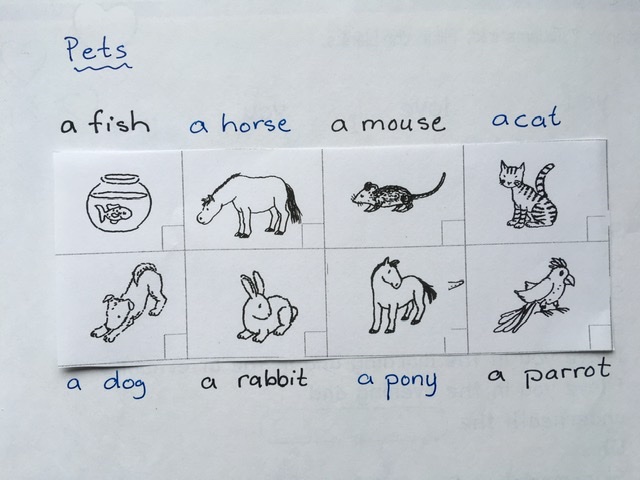 Pets
a fish a horse a mouse a cat
a dog a rabbit a pony a parrot